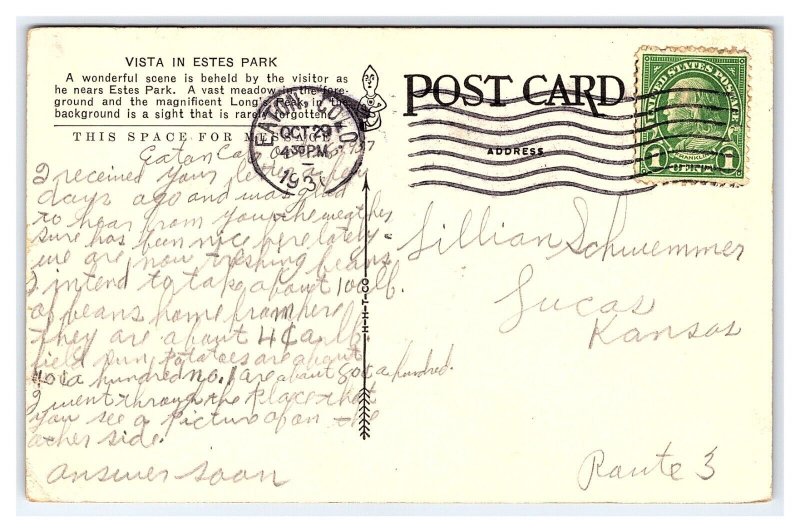 VISTA IN ESTES PARK
A wonderful scene is beheld by the visitor as
he nears Estes Park. A vast meadow in the fore-
ground and the magnificent Long's Peak in the
background is a sight that is rarely forgotten.
THIS SPACE FOR MESSAGE
POST CARD
ADDRESS
EATON, COLO
OCT 29
4 30 PM
193
UNITED STATES POSTAGE
FRANKLIN
1 CENT 1
H-H-T-CO.
Eaton Colo
I received your letter
days ago and was glad
to hear from you the weather
sure has been nice here lately.
we are now threshing beans
I intend to take about 100 lb.
of beans home from here
they are about 4¢ a lb.
field run Potatoes are about
40¢ a hundred no. 1 are about 80¢ a hundred.
I went through the Place that
you see a Picture of on the
other side.
answer soon
Lillian Schwemmer
Lucas
Kansas
Route 3